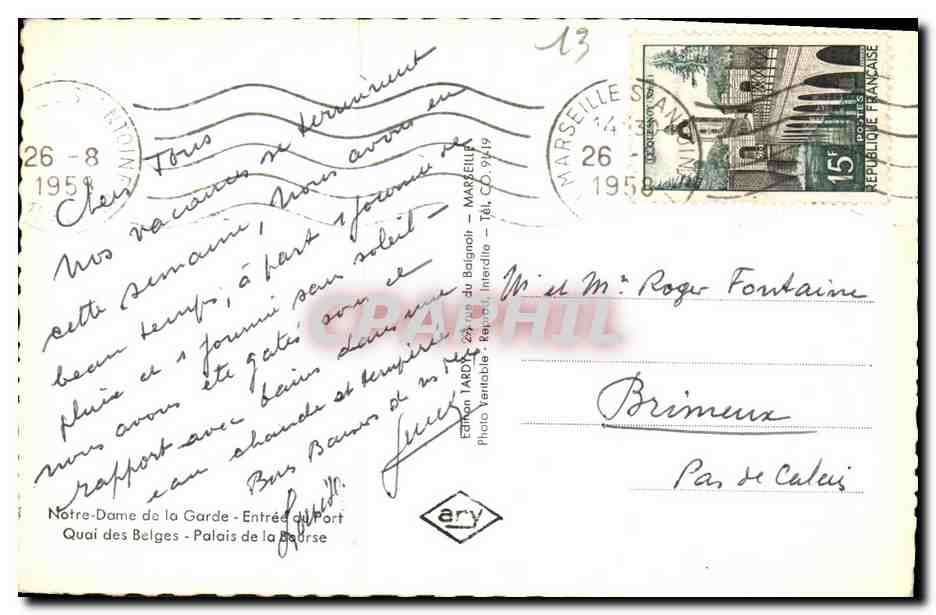 13
26 - 8
1958
MARSEILLE ST ANTOINE
26
1958
LE QUESNOY
15F
POSTES
REPUBLIQUE FRANÇAISE
Chers Tous
Nos vacances se terminent
cette semaine, nous avons eu
beau temps, à part 1 journée de
pluie et 1 journée sans soleil -
nous avons été gatés sous ce
rapport avec bains dans une
eau chaude et tempérée
Bons Baisers de nous deux
Edition TARDY, rue du Baignoir - MARSEILLE
Photo Véritable - Reprod. Interdite - Tél. CO. 91-19
M et Me Roger Fontaine
Brimeux
Pas de Calais
Notre-Dame de la Garde - Entrée du Port
Quai des Belges - Palais de la Bourse
ary
CPARHIL